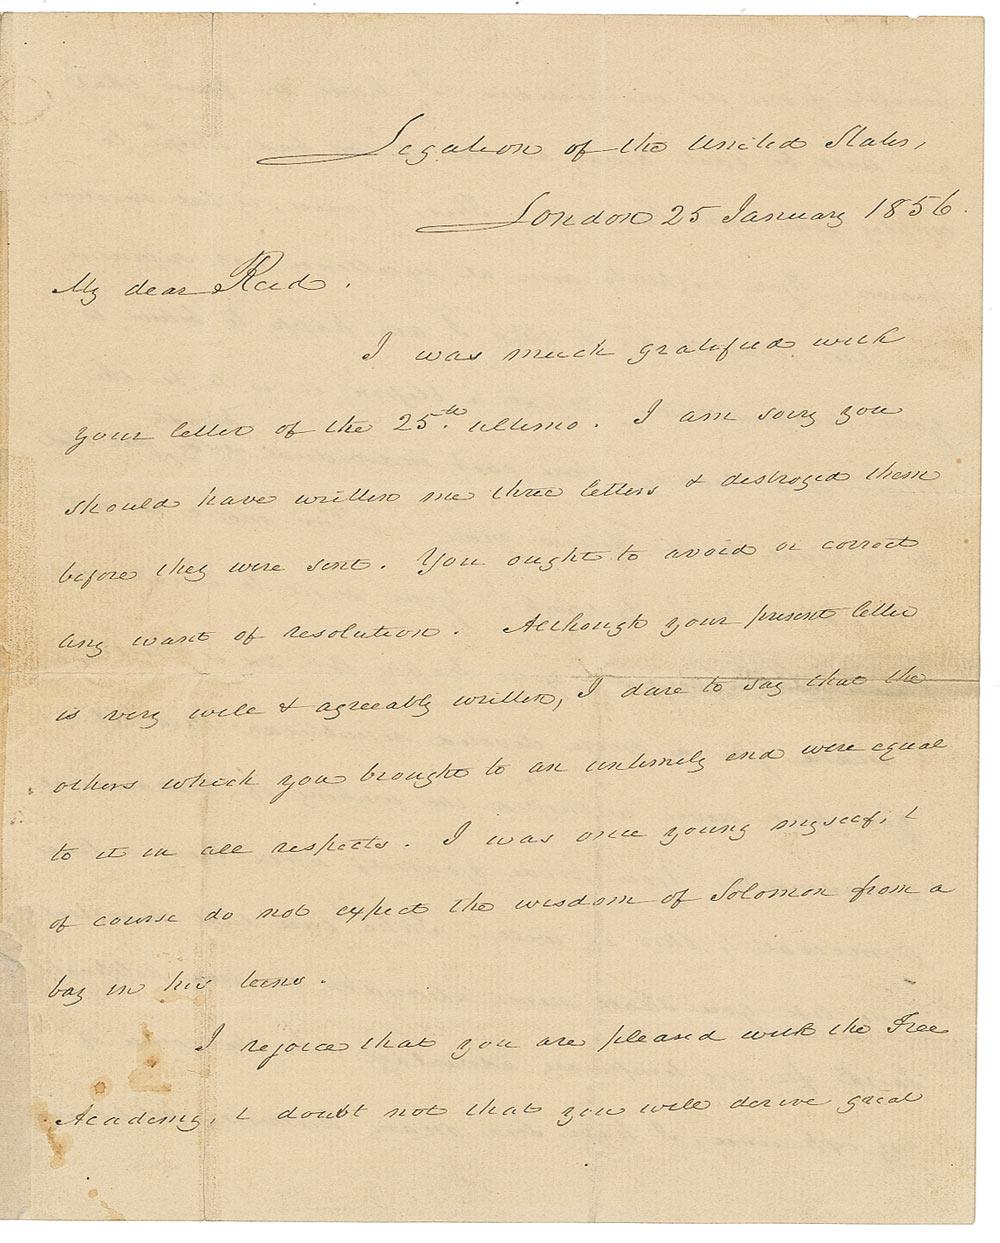 Legation of the United States,
London 25 January 1856.
My dear Reed.
I was much gratified with
your letter of the 25th. ultimo. I am sorry you
should have written me three letters & destroyed them
before they were sent. You ought to avoid or correct
any want of resolution. Although your present letter
is very well & agreeably written, I dare to say that the
others which you brought to an untimely end were equal
to it in all respects. I was once young myself, &
of course do not expect the wisdom of Solomon from a
boy in his teens.
I rejoice that you are pleased with the Free
Academy, & doubt not that you will derive great